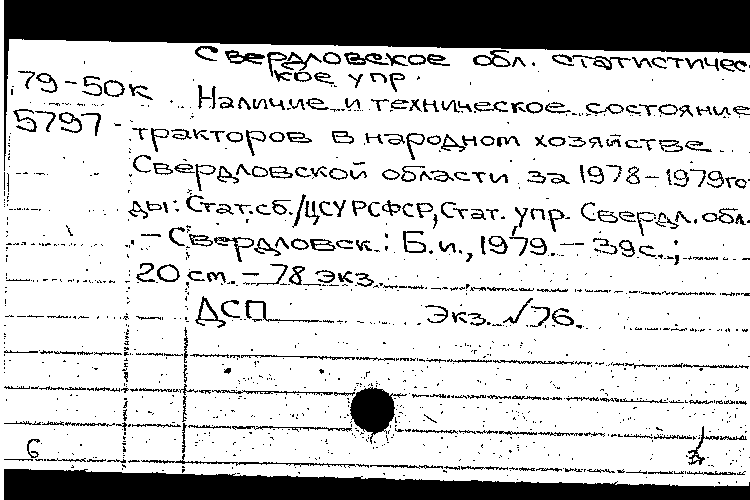 Свердловское обл. статистичес
кое упр.
79-50к Наличие и техническое состояние
5797- тракторов в народном хозяйстве
Свердловской области за 1978-1979го-
ды: Стат.сб./ЦСУ РСФСР, Стат. упр. Свердл. обл.
.-Свердловск.: Б.и., 1979. - 39с.;
20 см. - 78 экз.
ДСП Экз. №76.
6